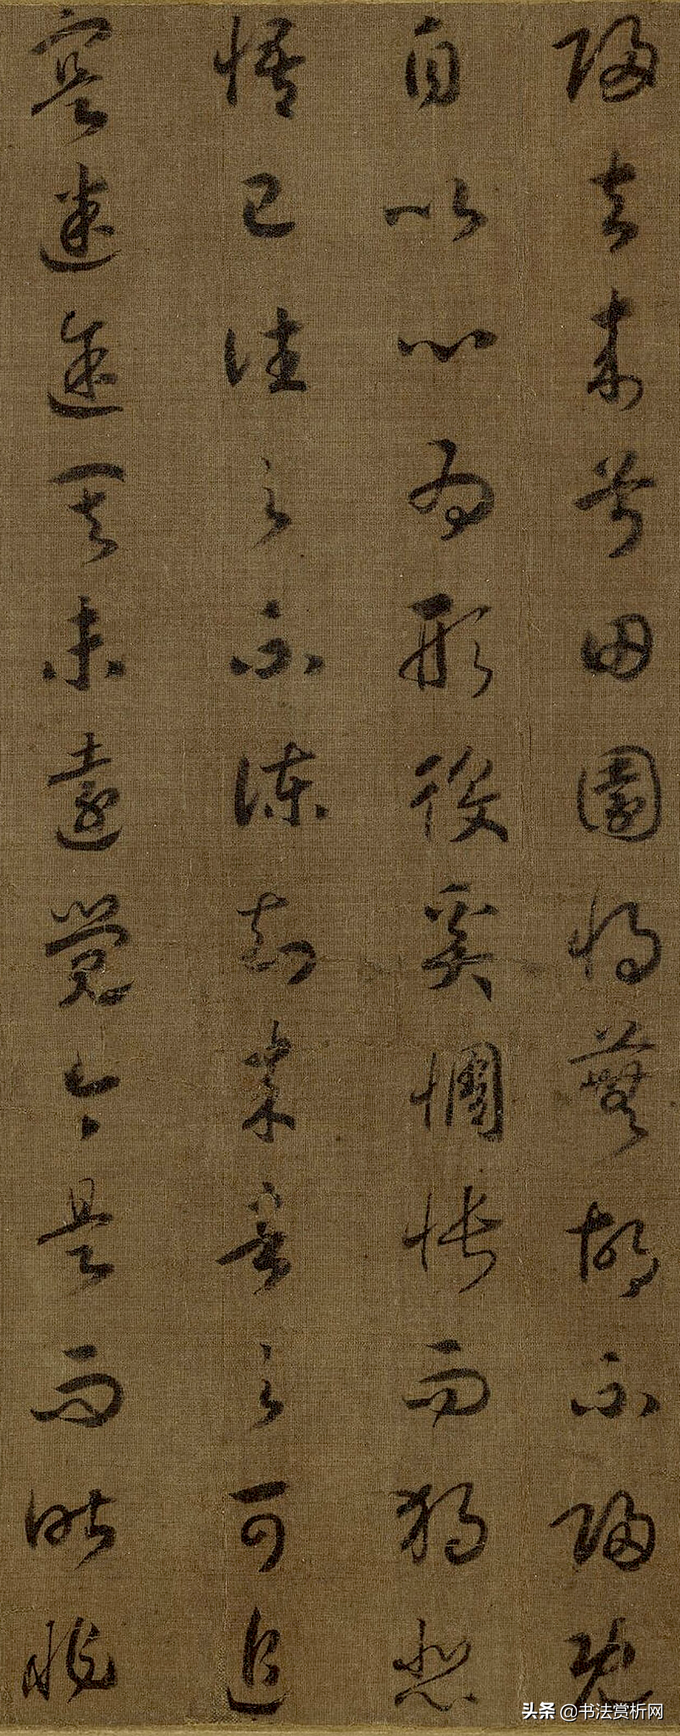 歸去来兮田園将蕪胡不歸既
自以心為形役奚惆悵而獨悲
悟已往之不諫知来者之可追
寔迷途其未遠覺今是而昨非
头条 @书法赏析网